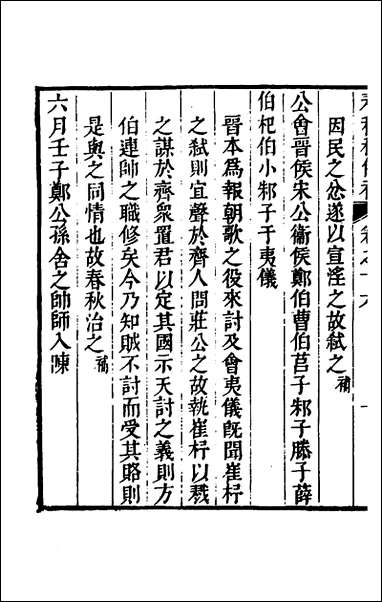 因民之忿遂以宣淫之故弑之補
公會晉侯宋公衞侯鄭伯曹伯莒子邾子滕子薛
伯杞伯小邾子于夷儀
晉本爲報朝歌之役來討及會夷儀旣聞崔杼
之弑則宜聲於齊人問莊公之故執崔杼以戮
之謀於齊衆置君以定其國示天討之義則方
伯連帥之職修矣今乃知賊不討而受其賂則
是與之同情也故春秋治之補
六月壬子鄭公孫舍之帥師入陳